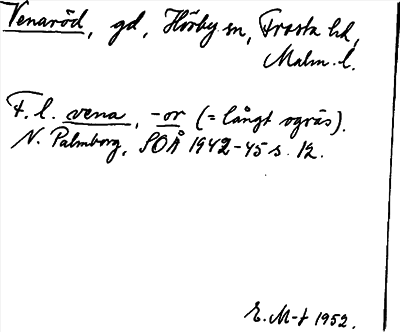 Venaröd, gd, Hörby sn, Frosta hd,
Malm. l.
F. l. vena, -or (= långt ogräs).
N. Palmborg, SOÅ 1942-45 s. 12.
E. M-f 1952.